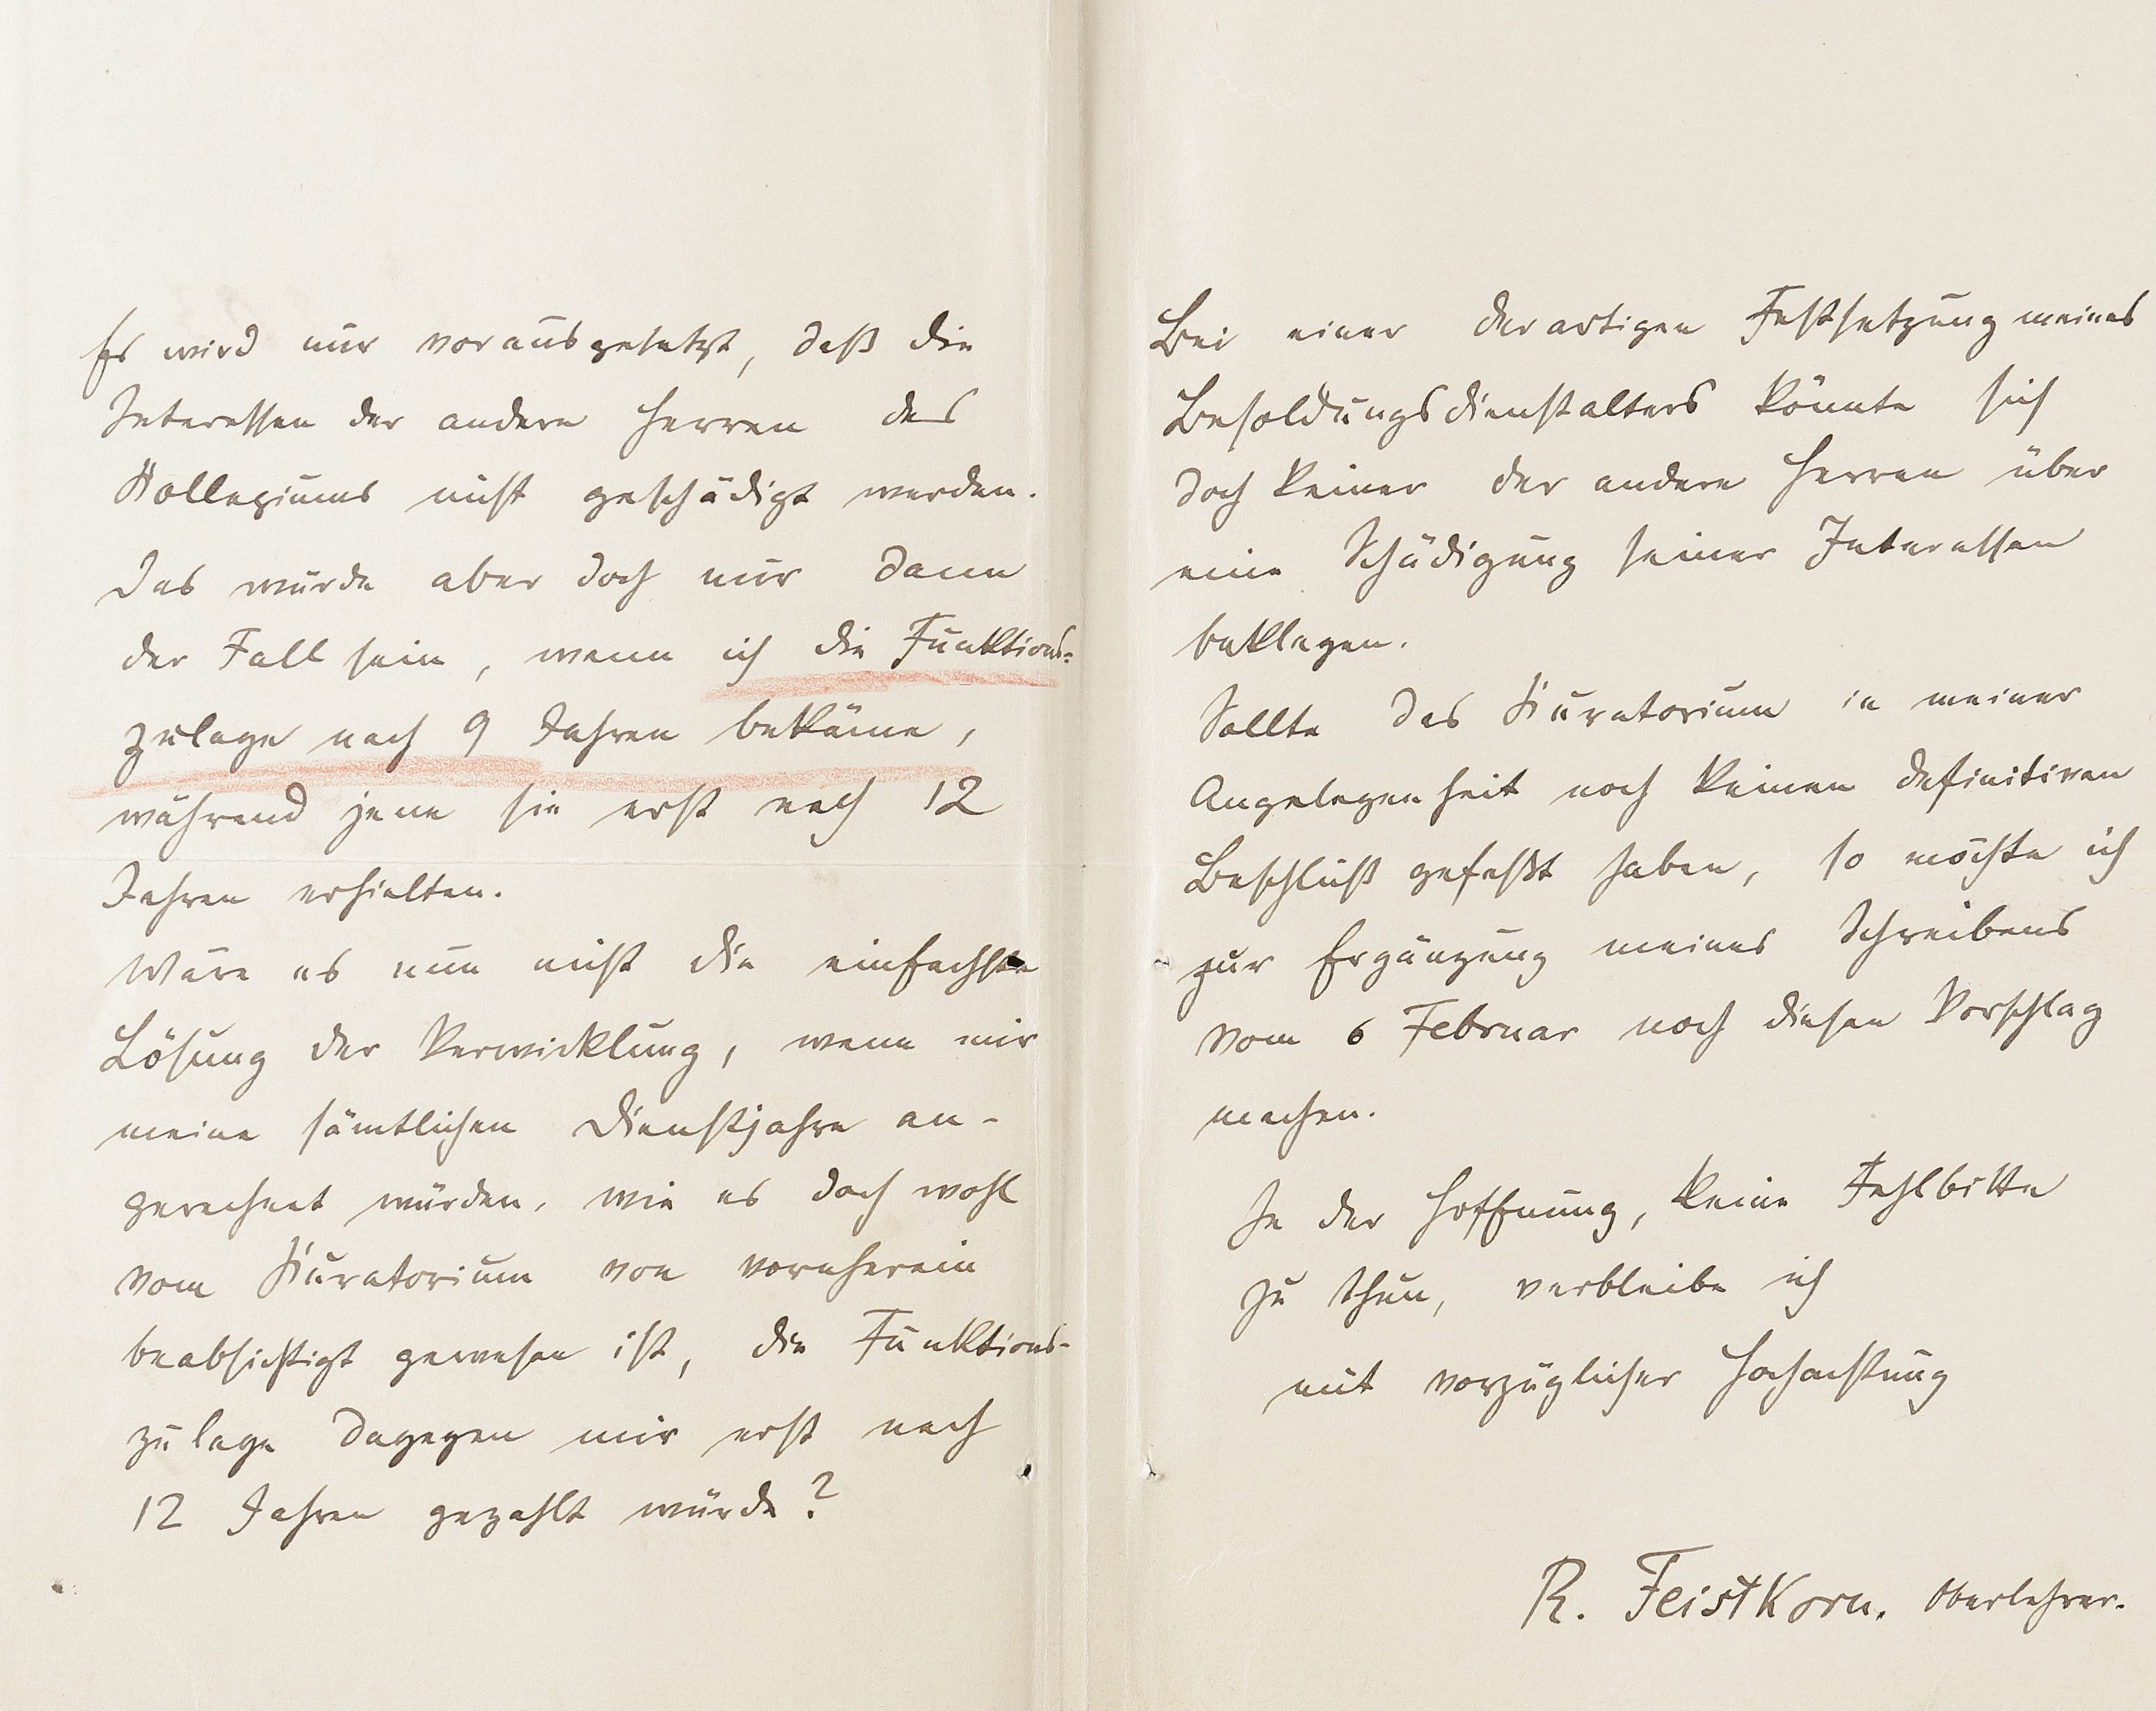 Es wird nur vorausgesetzt, daß die
Interessen der andern Herren des
Kollegiums nicht geschädigt werden.
Das würde aber doch nur dann
der Fall sein, wenn ich die Funktions-
zulage nach 9 Jahren bekäme,
während jene sie erst nach 12
Jahren erhielten.
Wäre es nun nicht die einfachste
Lösung der Verwicklung, wenn mir
meine sämtlichen Dienstjahre an-
gerechnet würden, wie es doch wohl
vom Kuratorium von vornherein
beabsichtigt gewesen ist, die Funktions-
zulage dagegen mir erst nach
12 Jahren gezahlt würde?
Bei einer derartigen Festsetzung meines
Besoldungsdienstalters könnte sich
doch keiner der andern Herren über
eine Schädigung seiner Interessen
beklagen.
Sollte das Kuratorium in meiner
Angelegenheit noch keinen definitiven
Beschluß gefaßt haben, so möchte ich
zur Ergänzung meines Schreibens
vom 6 Februar noch diesen Vorschlag
machen.
In der Hoffnung, keine Fehlbitte
zu thun, verbleibe ich
mit vorzüglicher Hochachtung
R. Feistkorn. Oberlehrer.